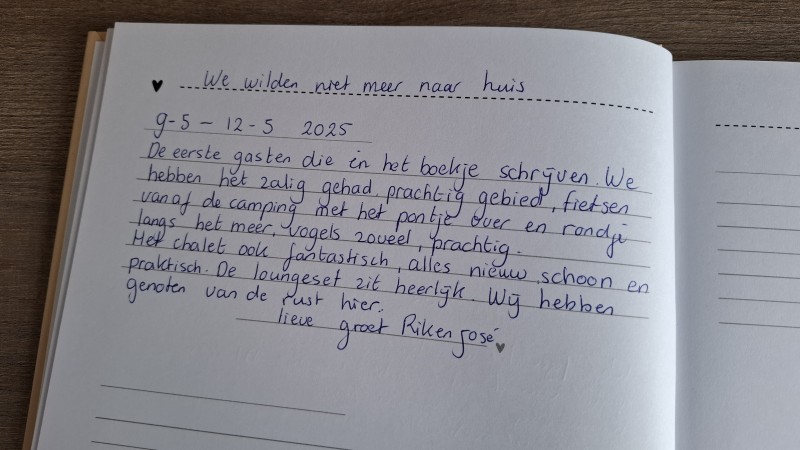 We wilden niet meer naar huis
9-5 - 12-5 2025
De eerste gasten die in het boekje schrijven. We
hebben het zalig gehad, prachtig gebied, fietsen
vanaf de camping met het pontje over en rondje
langs het meer, vogels zoveel, prachtig.
Het chalet ook fantastisch, alles nieuw, schoon en
praktisch. De loungeset zit heerlijk. Wij hebben
genoten van de rust hier.
lieve groet Rik en José